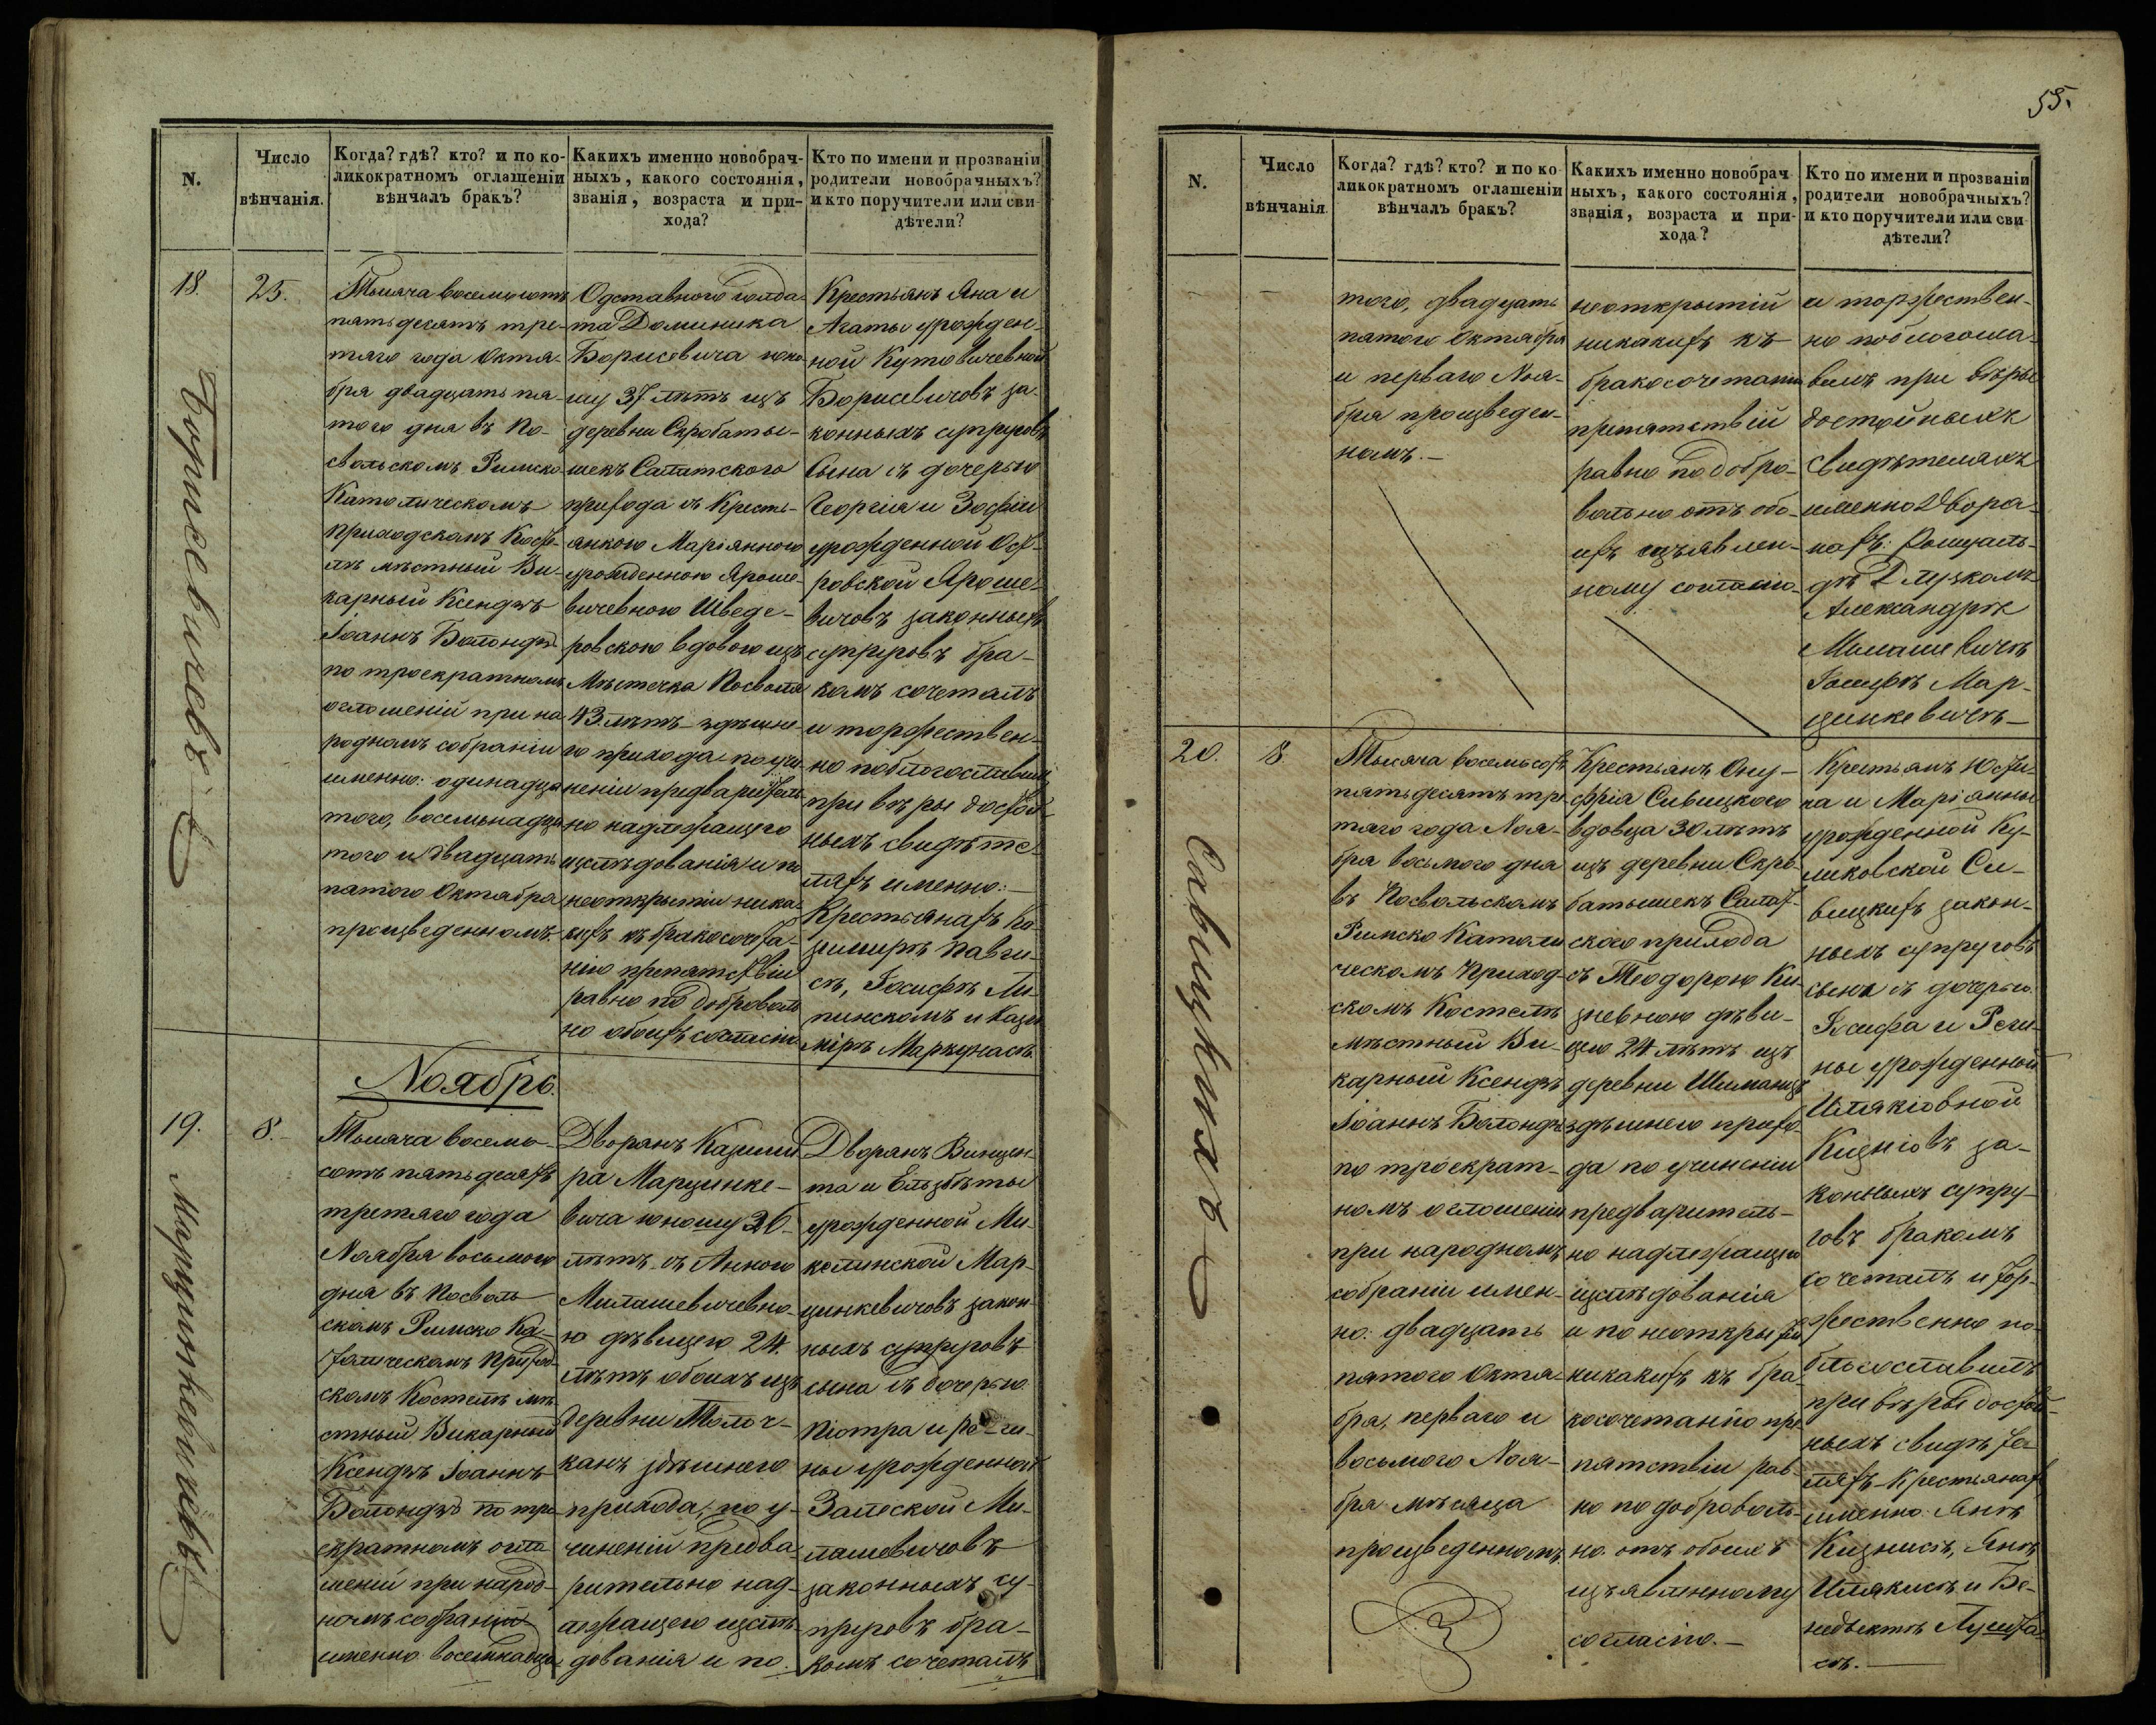 N.
Число
вѣнчанія.
Когда? гдѣ? кто? и по ко-
ликократномъ оглашеніи
вѣнчалъ бракъ?
Какихъ именно новобрач-
ныхъ, какого состоянія,
званія, возраста и при-
хода?
Кто по имени и прозваніи
родители новобрачныхъ?
и кто поручители или сви-
дѣтели?
18.
25.
Борисевичевъ
Тысяча восемьсотъ
пятьдесятъ тре-
тяго года Октя-
бря двадцать пя-
того дня въ По-
свольскомъ Римско
Католическомъ
приходскомъ Косте-
лѣ мѣстный Ви-
карный Ксендзъ
ІоаннъБолондзъ
по троекратномъ
оглошеній при на
родномъ собраніи
именно: одинадца
того, восемьнадца
того и двадцать
пятого Октября
произведенномъ.
Одставного солда-
та Доминика
Борисевича юно-
шу 37 лѣтъ изъ
деревни Скробаты-
шекъ Салатского
прихода съ Кресть-
янкою Маріянною
урожденною Яроше-
вичевною Шведе-
ровскою вдовою изъ
Мѣстечка Посволя
43 лѣтъ здѣшне-
го прихода по учи-
неніи предваритель-
но надлежащего
изслѣдованія и по
неоткрытіи ника-
кихъ къ бракосочета-
нію препятствій
равно по доброволь
но обоихъ согласію
Крестьянъ Яна и
Агаты урожден-
ной Кутовичевной
Борисевичовъ за-
конныхъ супруговъ
Сына съ дочерью
Георгія и Зофіи
урожденной Ост-
ровской Яроше-
вичовъ законныхъ
супруговъ бра-
комъ сочеталъ
и торжествен-
но поблогославилъ
при вѣры достой-
ныхъ свидѣте-
ляхъ именно:
Крестьянахъ Ка-
зимирѣ Павги-
съ, Іосифѣ Ли-
пинскомъ и Кази
мірѣ Маркунасъ.
Ноябрь.
19.
8.
Марцинкевичевъ
Тысяча восемь-
сотъ пятьдесятъ
третяго года
Ноября восьмого
дня въ Посволь-
скомъ Римско Ка-
толическомъ Приход-
скомъ Костелѣ мѣ-
стный Викарный
Ксендзъ Іоаннъ
Болондзъ по трое
екратномъ огла
шеній при народ-
номъ собраніи
именно восемнадца
Дворянъ Казими
ра Марцинке-
вича юношу 26
лѣтъ съ Анною
Милашевичевно-
ю дѣвицею 24.
лѣтъ обоихъ изъ
деревни Толоч-
канъ здѣшнего
прихода, по у-
чиненій предва-
рительно над-
лежащего изслѣ-
дованія и по
Дворянъ Винцен-
та и Ельзбѣты
урожденной Ми-
колинской Мар-
цинкевичовъ закон-
ныхъ супруговъ
сына съ дочерью
Піотра и Реги-
ны урожденной
Залеской Ми-
лашевичовъ
законныхъ су-
пруговъ бра-
комъ сочеталъ
55.
N.
Число
вѣнчанія.
Когда? гдѣ? кто? и по ко
ликократномъ оглашеніи
вѣнчалъ бракъ?
Какихъ именно новобрач
ныхъ, какого состоянія,
званія, возраста и при-
хода?
Кто по имени и прозваніи
родители новобрачныхъ?
и кто поручители или сви-
дѣтели?
того, двадцать
пятого Октября
и перваго Ноя-
бря произведен-
номъ.
неоткрытій
никакихъ къ
бракосочетанію
препятствій
равно по добро-
вольно отъ обо-
ихъ изъявлен-
ному согласію
и торжествен-
но поблогосла-
вилъ при вѣры
достойныхъ
свидѣтеляхъ
именно Дворя-
нахъ: Ромуаль-
дѣ Длускомъ
Александрѣ
Милашевичѣ
Іосифѣ Мар-
цинкевичѣ
20.
8.
Савицкихъ
Тысяча восемьсотъ
пятьдесятъ тре
тяго года Ноя-
бря восьмого дня
въ Посвольскомъ
Римско Католи
ческомъ Приход-
скомъ Костелѣ
мѣстный Ви-
карный Ксендзъ
Іоаннъ Болондзъ
по троекрат-
номъ оглошеніи
при народномъ
собраніи имен-
но: двадцать
пятого Октя-
бря, перваго и
восьмого Ноя-
бря мѣсяца
произведенномъ
Крестьянъ Ону-
фрія Сивицкого
вдовца 30 лѣтъ
изъ деревни Скро-
батышекъ Салат-
ского прихода
съ Теодорою Ки-
зневною дѣви-
цею 24 лѣтъ изъ
деревни Шиманцъ
здѣшнего прихо-
да по учиненіи
предваритель-
но надлежащего
изслѣдованія
и по неоткрытію
никакихъ къ бра-
косочетанію пре
пятствіи рав-
но по доброволь-
но отъ обоихъ
изъявленному
согласію.
Крестьянъ Юсти-
на и Маріанны
урожденной Ку-
ликовской Си-
вицкихъ закон-
ныхъ супруговъ
сына съ дочерью
Іосифа и Реги-
ны урожденной
Шлякіовной
Кизнісовъ за-
конныхъ супру-
говъ бракомъ
сочеталъ и тор-
жественно по-
блогославилъ
при вѣры достой-
ныхъ свидѣте-
ляхъ Крестьянахъ
именно Янѣ
Кизнисѣ, Янѣ
Шлякисѣ и Бе-